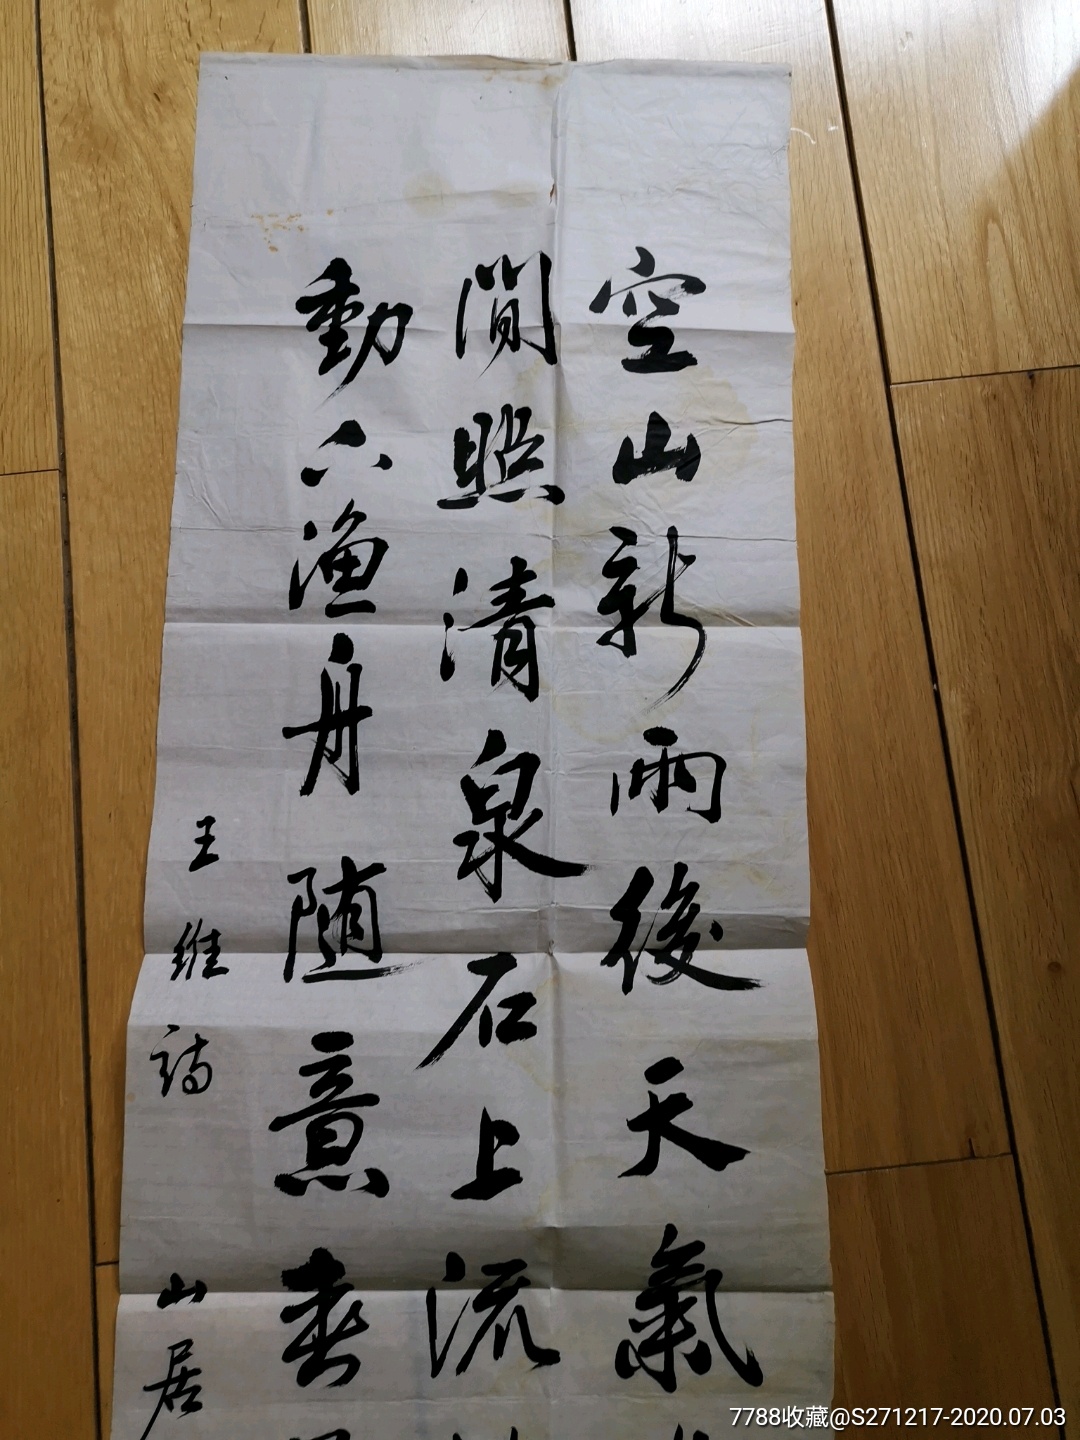 空山新雨後天氣
間照清泉石上流
動下漁舟随意春
王維詩 山居
7788收藏@S271217-2020.07.03